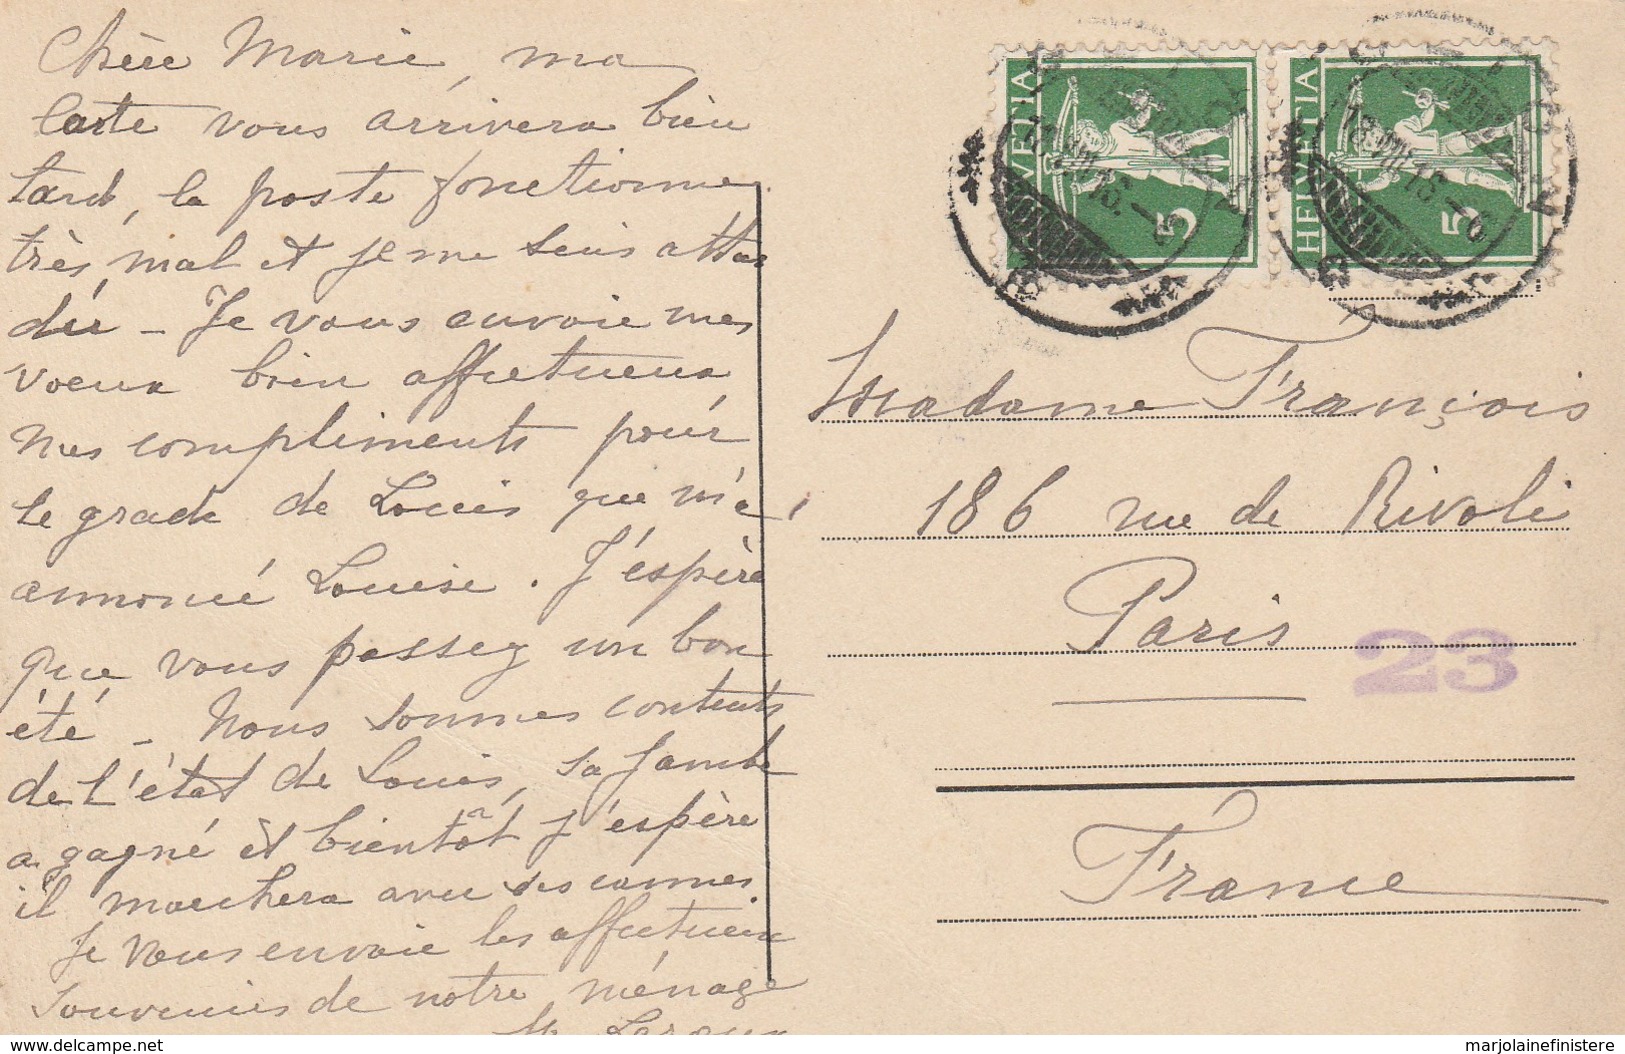 Chère Marie, ma
Carte vous arrivera bien
tard, la poste fonctionne
très mal et je me suis attar
dée - Je vous envoie mes
voeux bien affectueux
mes compliments pour
le grade de Louis que m'a
annoncé Louise. J'espère
que vous passez un bon
été - Nous sommes contents
de l'état de Louis, sa jambe
a gagné et bientôt j'espère
il marchera avec des cannes
Je vous envoie les affectueux
souvenirs de notre ménage
HELVETIA
5
HELVETIA
5
18.VIII.16.-6
Madame François
186 rue de Rivoli
Paris
23
France
delcampe.net
marjolainefinistere